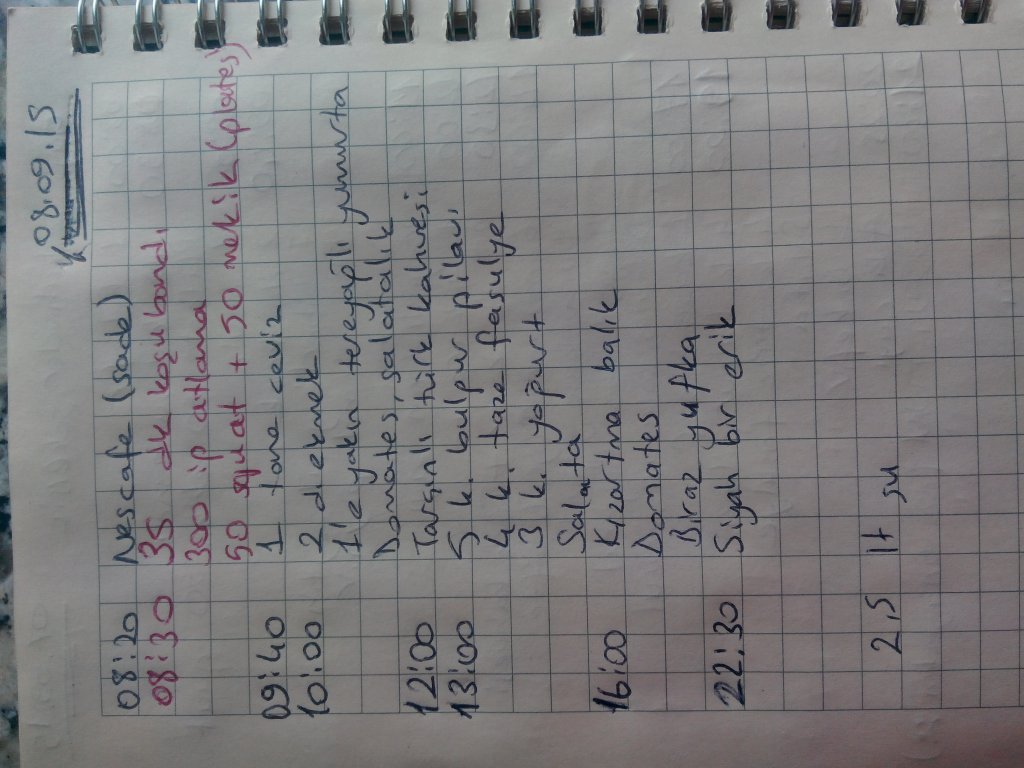 08.09.13
08:20 Nescafe (sade)
08:30 35 dk koşu bandı
300 ip atlama
50 squat + 50 mekik (plates)
09:40 1 tane ceviz
10:00 2 d. ekmek
1'e yakın tereyağlı yumurta
Domates, salatalık
12:00 Tarçınlı türk kahvesi
13:00 5 k. bulgur pilavı
4 k. taze fasulye
3 k. yoğurt
Salata
16:00 Kızartma balık
Domates
Biraz yufka
22:30 Siyah bir erik
2,5 lt su